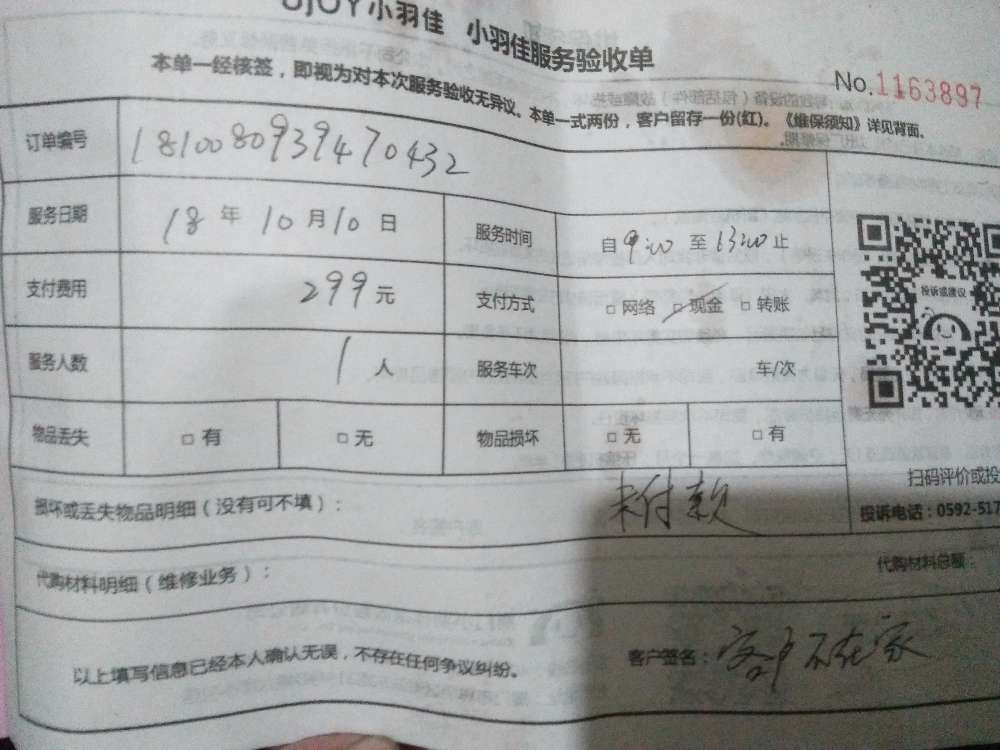 UJOY小羽佳 小羽佳服务验收单
本单一经核签，即视为对本次服务验收无异议。本单一式两份，客户留存一份(红)。《维保须知》详见背面。
No.1163897
订单编号 181008093947 0432
服务日期 18 年 10 月 10 日 服务时间 自 9:00 至 13:00 止
支付费用 299 元 支付方式 □ 网络 □ 现金 □ 转账
投诉或建议
服务人数 1 人 服务车次 车/次
物品丢失 □ 有 □ 无 物品损坏 □ 无 □ 有
扫码评价或投
损坏或丢失物品明细（没有可不填）： 未付款
投诉电话：0592-517
代购材料明细（维修业务）： 代购材料总额
以上填写信息已经本人确认无误，不存在任何争议纠纷。 客户签名：客户不在家